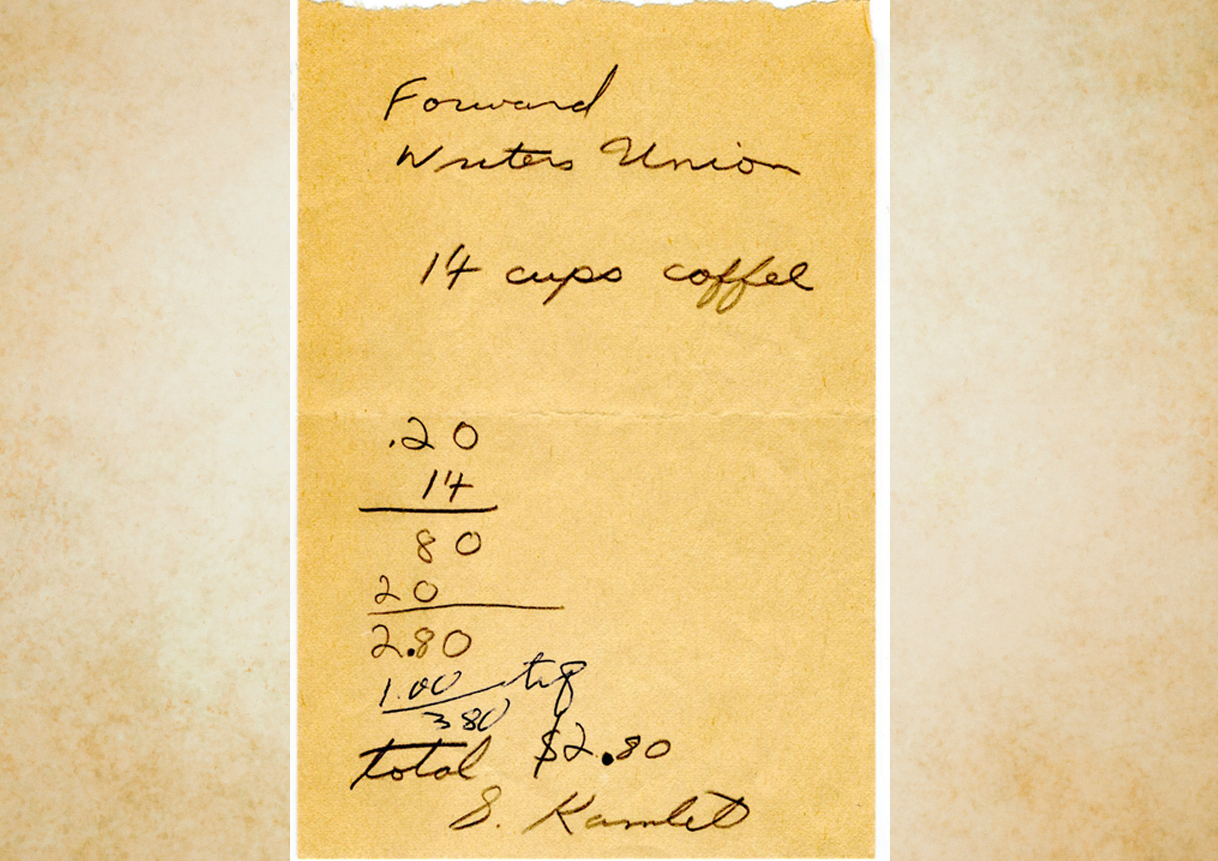 Forward
Writers Union
14 cups coffee
.20
14
80
20
2.80
1.00 tip
3 80
total $2.80
S. Kamlet